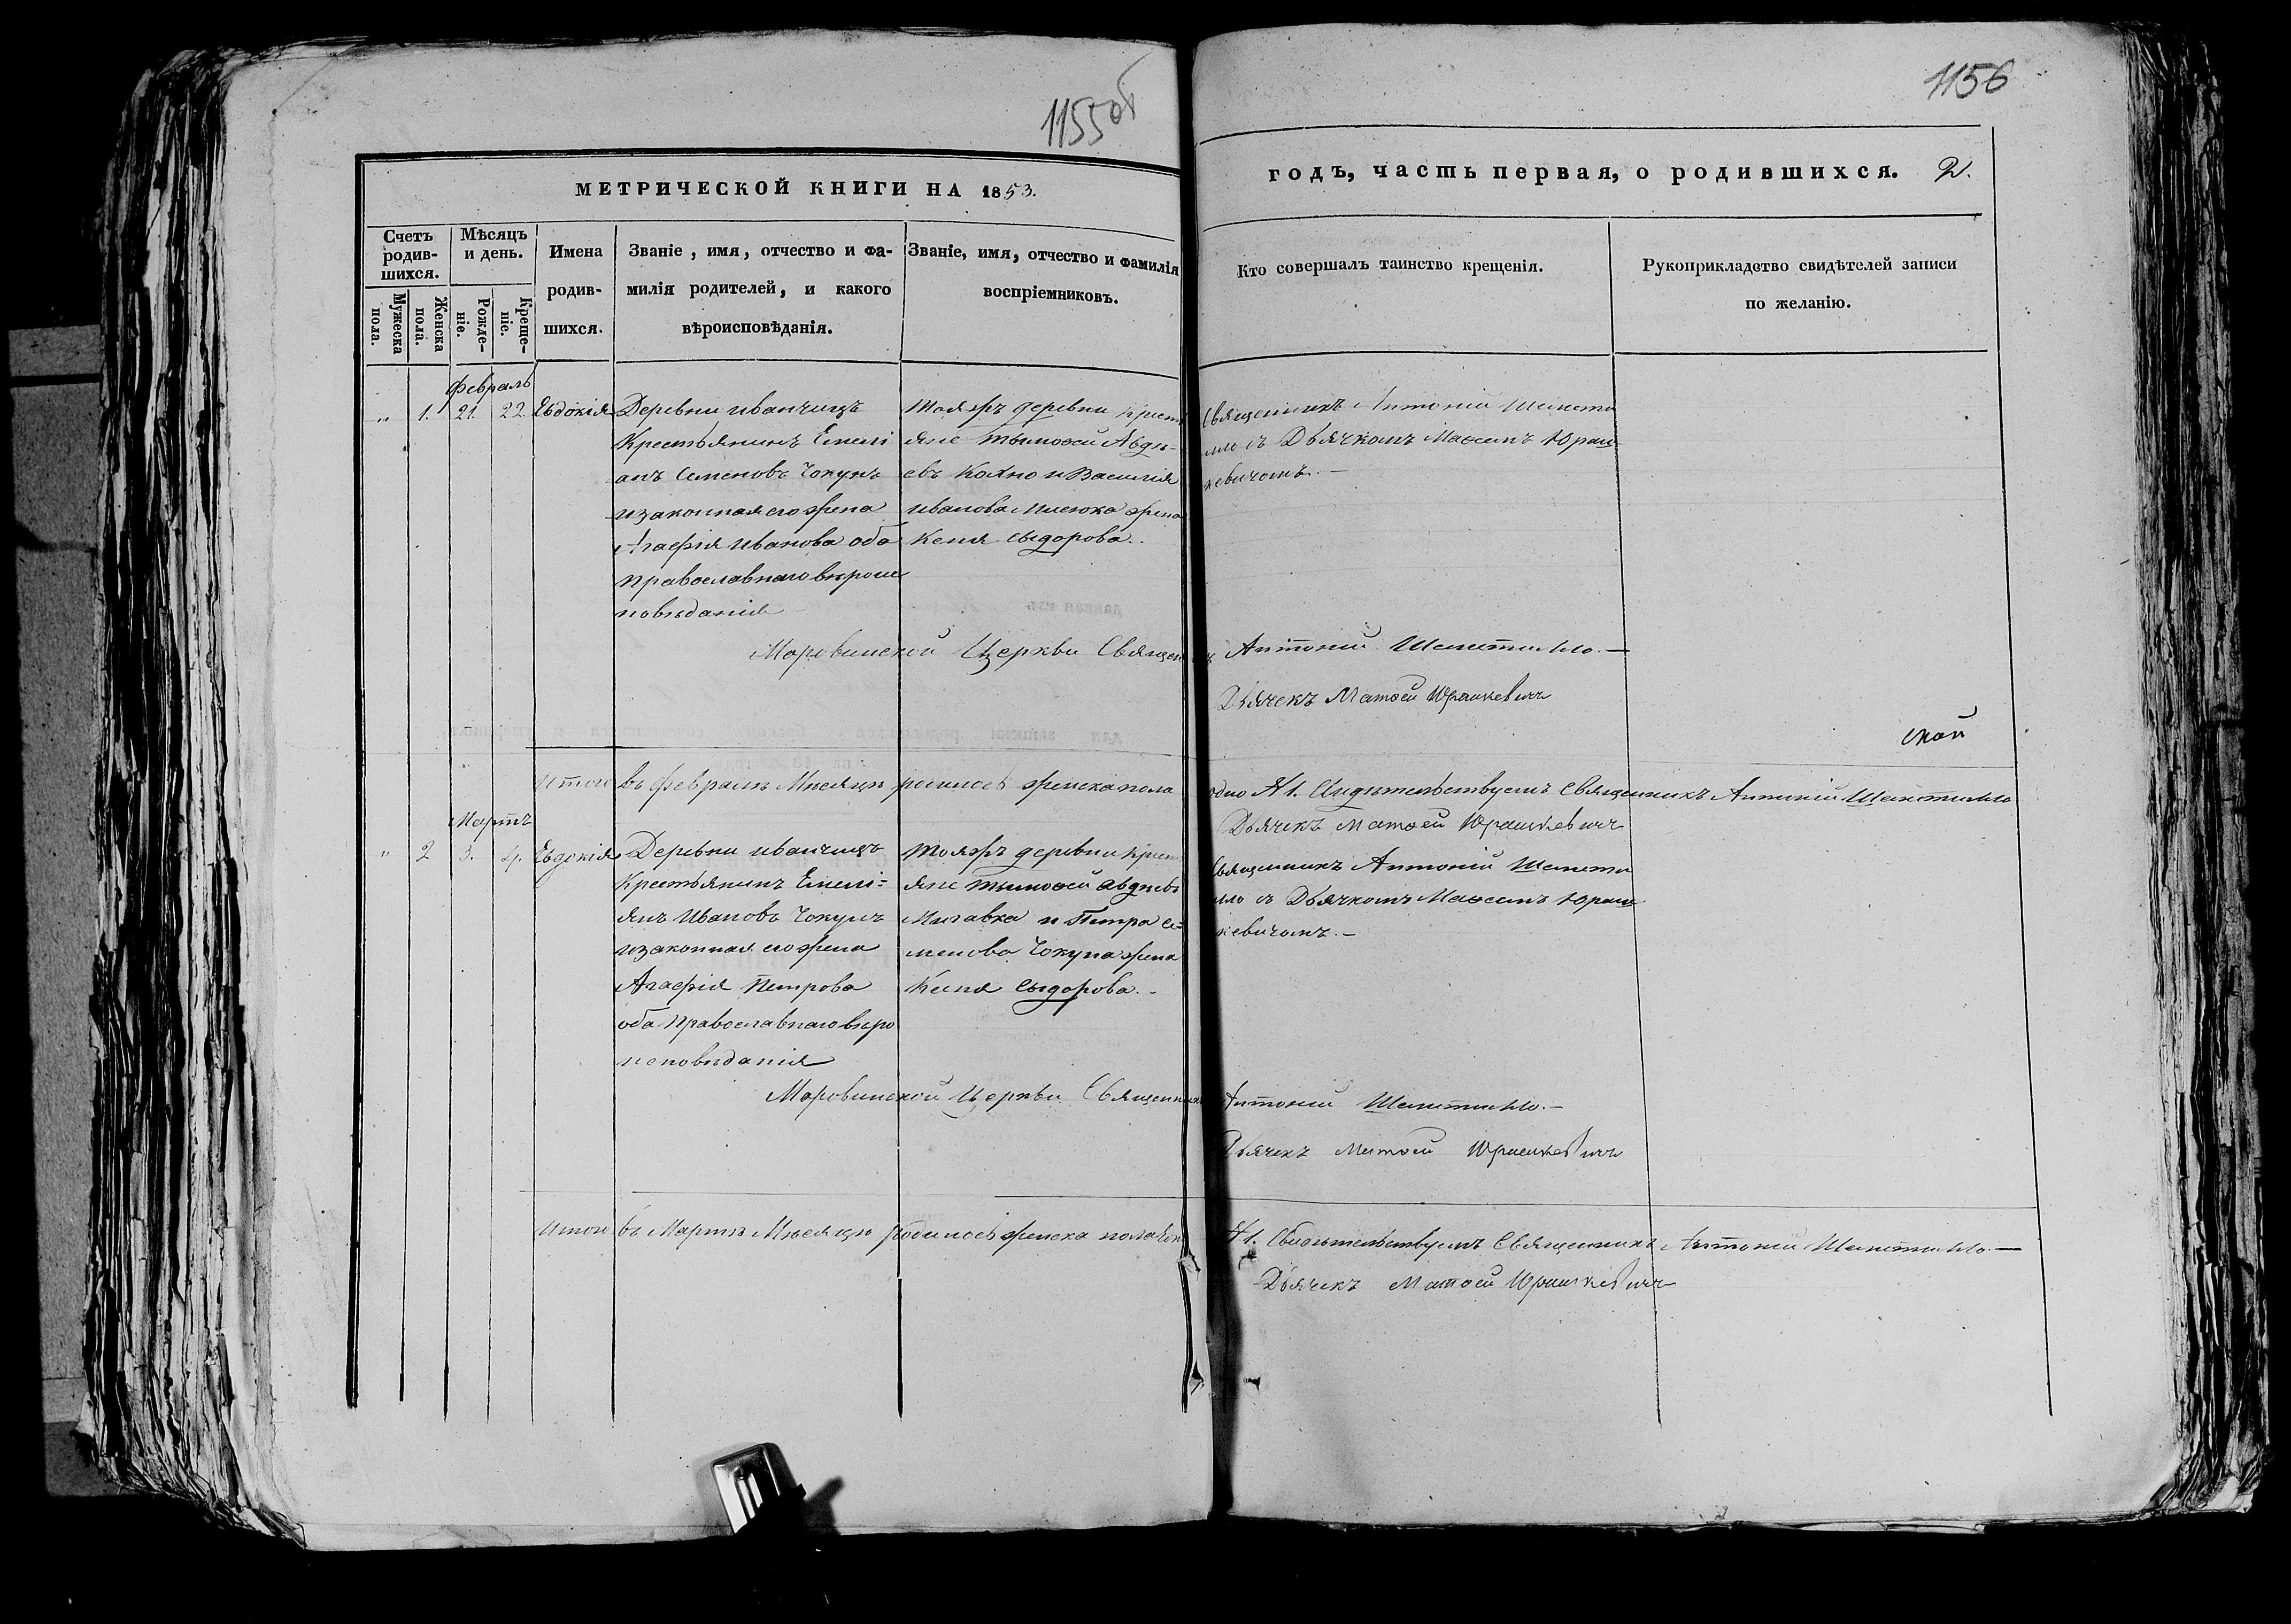 1155об
1156
МЕТРИЧЕСКОЙ КНИГИ НА 1853.
годъ, часть первая, о родившихся. 2.
Счетъ родив-шихся.
Мужеска пола.
Женска пола.
Мѣсяцъ и день.
Рожде-ніе.
Креще-ніе.
Имена родив-шихся.
Званіе, имя, отчество и фа-
милія родителей, и какого
вѣроисповѣданія.
Званіе, имя, отчество и фамилія
воспріемниковъ.
Кто совершалъ таинство крещенія.
Рукоприкладство свидѣтелей записи
по желанію.
Февраль
„ 1. 21. 22. Евдокія
Деревни Иванчицъ
Крестьянинъ Емелі
анъ Семеновъ Чокунъ
и законная его жена
Агафія Иванова оба
православнаго вѣроис
повѣданія
Тояжъ деревни крест
яне Тымофей Авдѣ-
евъ Кохно и Василія
Иванова жена
Ксенія Сыдорова.
Священникъ Антоній Шемети
лло съ Дьячкомъ Юраш
кевичомъ. —
Моровинской Церкви Священникъ Антоній Шеметилло. —
Дьячекъ Матѳей Юрашкевичъ
ской
Итого въ Февралѣ Мѣсяцѣ женска пола одно № 1. Свидѣтельствуемъ Священникъ Антоній Шеметилло
Дьячекъ Матѳей Юрашкевичъ
Мартъ
„ 2 3. 4. Евдокія
Деревни Иванчицъ
Крестьянинъ Емелі-
янъ Ивановъ Чокунъ
и законная его жена
Агафія Петрова
оба православнаго вѣро
исповѣданія
Тояжъ деревни крест
яне Тымофей Авдѣевъ
и Петра Се-
менова Чокуна жена
Ксенія Сыдорова. -
Священникъ Антоній Шемети
лло съ Дьячкомъ Юраш
кевичомъ. —
Моровинской Церкви Священникъ Антоній Шеметилло. —
Дьячекъ Матѳей Юрашкевичъ
Итого въ Мартѣ Мѣсяцѣ родилось женска пола № 1. Свидѣтельствуемъ Священникъ Антоній Шеметилло. —
Дьячекъ Матѳей Юрашкевичъ